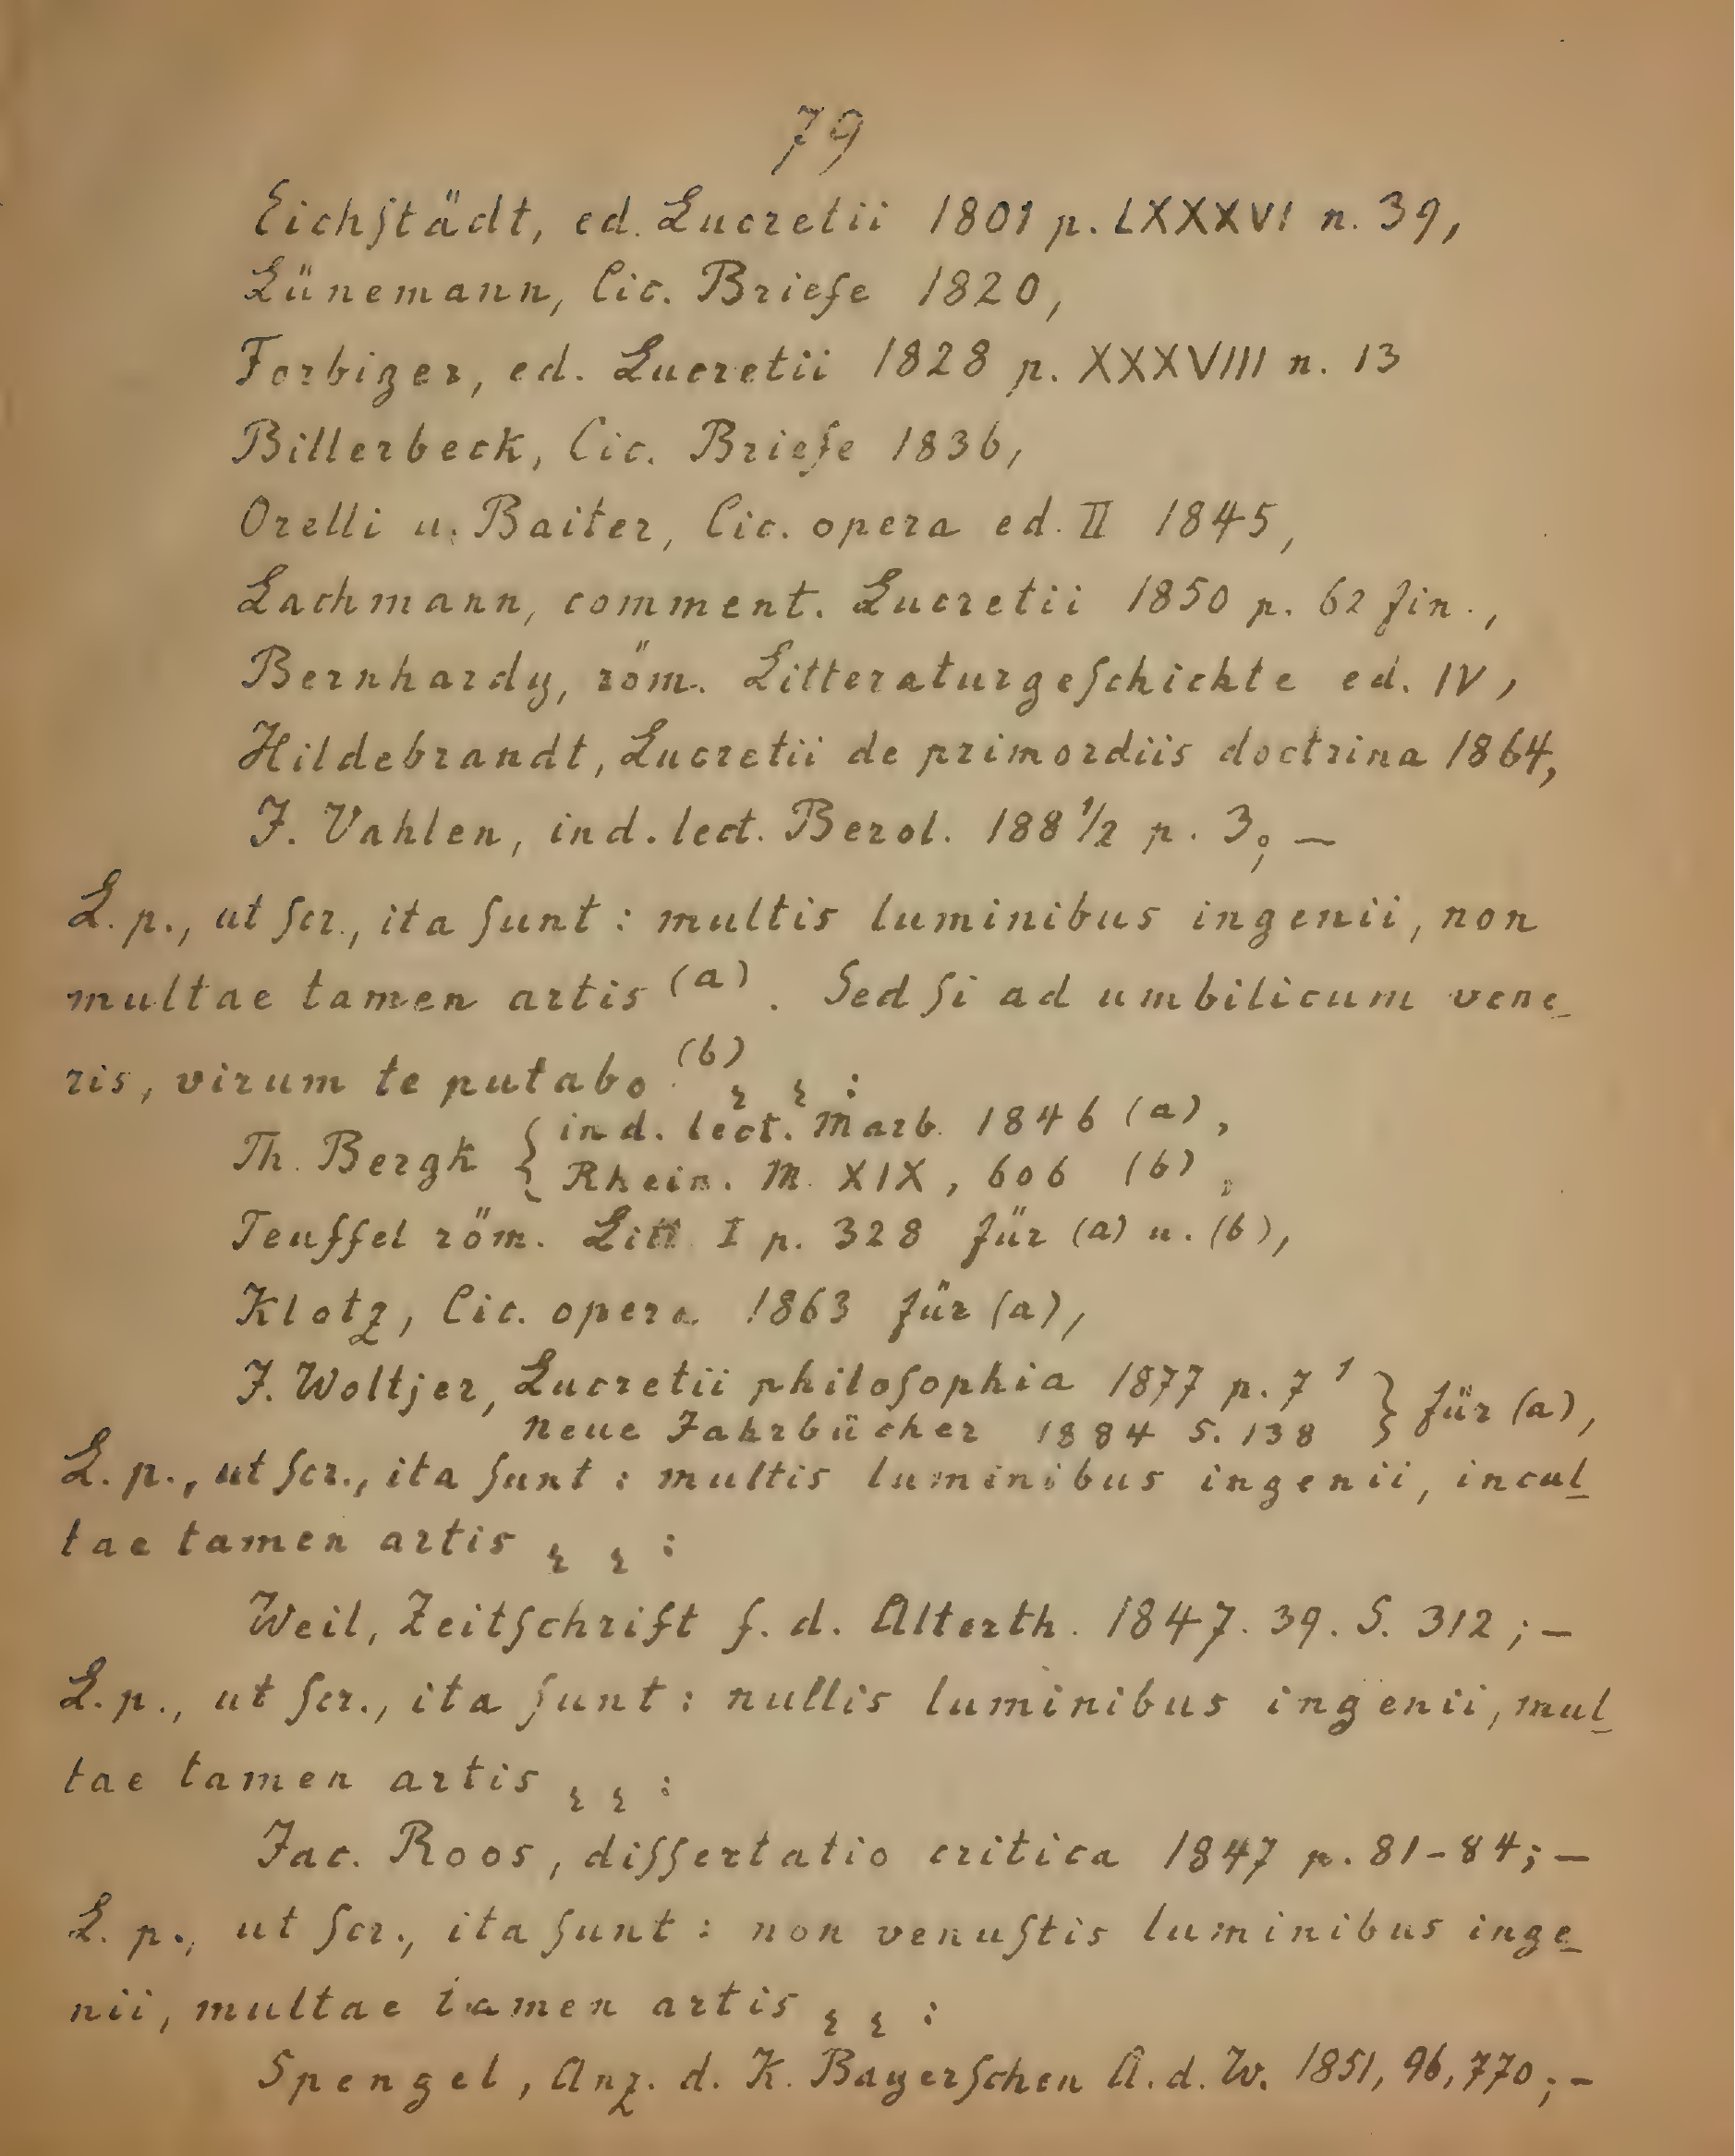 79
Eichſtädt, ed. Lucretii 1801 p. LXXXVI n. 39,
Lünemann, Cic. Briefe 1820,
Forbiger, ed. Lucretii 1828 p. XXXVIII n. 13
Billerbeck, Cic. Briefe 1836,
Orelli u. Baiter, Cic. opera ed. II 1845,
Lachmann, comment. Lucretii 1850 p. 62 fin.,
Bernhardy, röm. Litteraturgeſchichte ed. IV,
Hildebrandt, Lucretii de primordiis doctrina 1864,
J. Vahlen, ind. lect. Berol. 188 1/2 p. 3; —
L. p., ut ſcr., ita ſunt: multis luminibus ingenii, non
multae tamen artis (a). Sed ſi ad umbilicum vene_
ris, virum te putabo. (b) ꝛ ꝛ :
Th. Bergk { ind. lect. Marb. 1846 (a),
Rhein. M. XIX, 606 (b),
Teuffel röm. Litt. I p. 328 für (a) u. (b),
Klotz, Cic. opera 1863 für (a),
J. Woltjer, Lucretii philoſophia 1877 p. 7 1 } für (a),
Neue Jahrbücher 1884 S. 138
L. p., ut ſcr., ita ſunt: multis luminibus ingenii, incul_
tae tamen artis ꝛ ꝛ :
Weil, Zeitſchrift f. d. Alterth. 1847. 39. S. 312; —
L. p., ut ſcr., ita ſunt: nullis luminibus ingenii, mul_
tae tamen artis ꝛ ꝛ :
Jac. Roos, diſſertatio critica 1847 p. 81-84; —
L. p., ut ſcr., ita ſunt: non venuſtis luminibus inge_
nii, multae tamen artis ꝛ ꝛ :
Spengel, Anz. d. K. Bayerſchen A. d. W. 1851, 96, 770; —